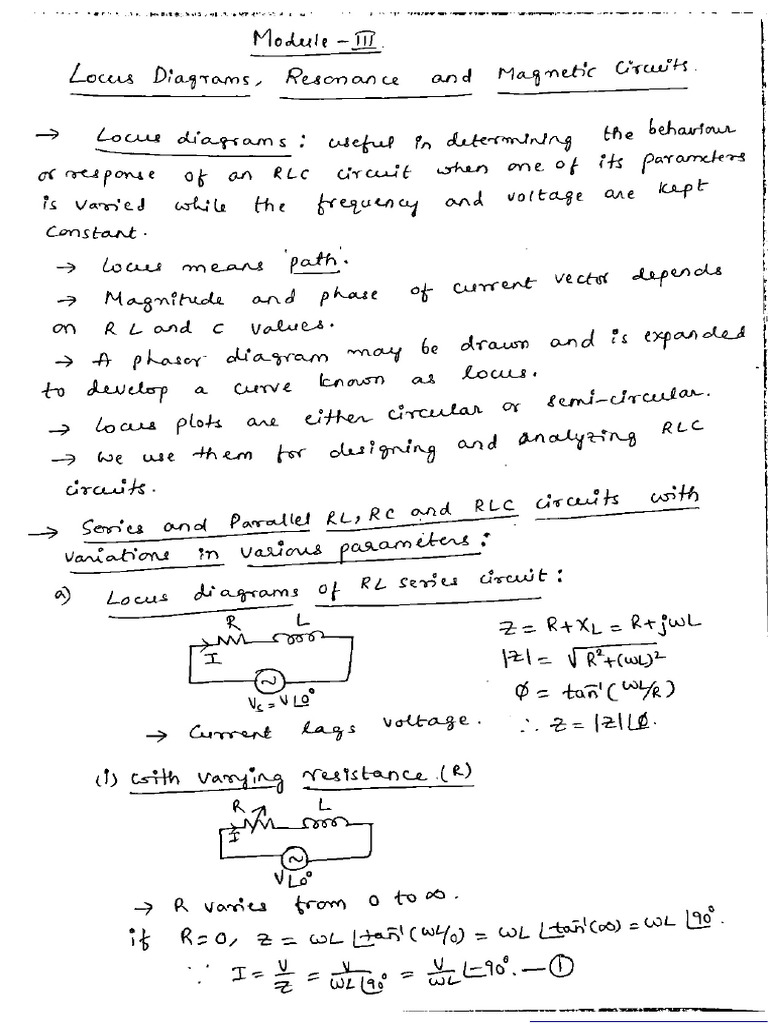 Module - III.
Locus Diagrams, Resonance and Magnetic Circuits.
→ Locus diagrams: useful in determining the behaviour
or response of an RLC circuit when one of its parameters
is varied while the frequency and voltage are kept
constant.
→ Locus means 'path'.
→ Magnitude and phase of current vector depends
on R L and C values.
→ A phasor diagram may be drawn and is expanded
to develop a curve known as locus.
→ Locus plots are either circular or semi-circular.
→ We use them for designing and analyzing RLC
circuits.
→ Series and Parallel RL, RC and RLC circuits with
variations in various parameters:
a) Locus diagrams of RL series circuit:
R L
I
Vs = V∠0°
Z = R+XL = R+jωL
|Z| = √R²+(ωL)²
Ø = tan⁻¹(ωL/R)
∴ Z = |Z|∠Ø.
→ Current lags voltage.
(i) with varying resistance.(R)
R L
I
V∠0°
→ R varies from 0 to ∞.
if R=0, Z = ωL ∠tan⁻¹(ωL/0) = ωL ∠tan⁻¹(∞) = ωL ∠90°.
∵ I = V/Z = V/ωL∠90° = V/ωL ∠-90°. — ①